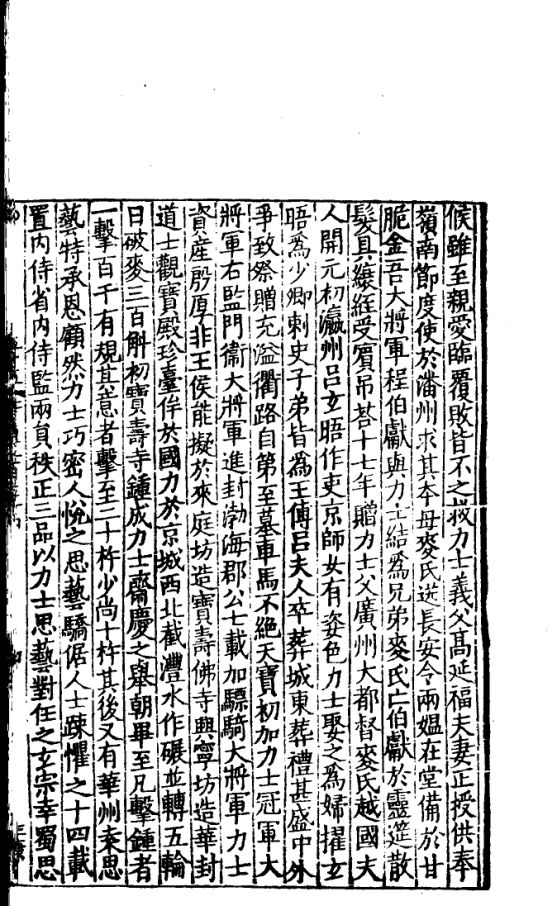 候雖至親愛臨覆敗皆不之救力士義父高延福夫妻正授供奉
嶺南節度使於潘州求其本母麥氏送長安令兩媼在堂備於甘
脆金吾大將軍程伯獻與力士結為兄弟麥氏亡伯獻於靈筵散
髮具縗絰受賓吊荅十七年贈力士父廣州大都督麥氏越國夫
人開元初瀛州呂玄晤作吏京師女有姿色力士娶之為婦擢玄
晤為少卿刺史子弟皆為王傅呂夫人卒葬城東葬禮甚盛中外
爭致祭贈充溢衢路自第至墓車馬不絕天寶初加力士冠軍大
將軍右監門衞大將軍進封渤海郡公七載加驃騎大將軍力士
資產殷厚非王侯能擬於來庭坊造寶壽佛寺興寧坊造華封
道士觀寶殿珍臺侔於國力於京城西北截灃水作碾並轉五輪
日破麥三百斛初寶壽寺鍾成力士齋慶之舉朝畢至凡擊鍾者
一擊百千有規其意者擊至二十杵少尚十杵其後又有華州袁思
藝特承恩顧然力士巧密人悅之思藝驕倨人士踈懼之十四載
置內侍省內侍監兩員秩正三品以力士思藝對任之玄宗幸蜀思